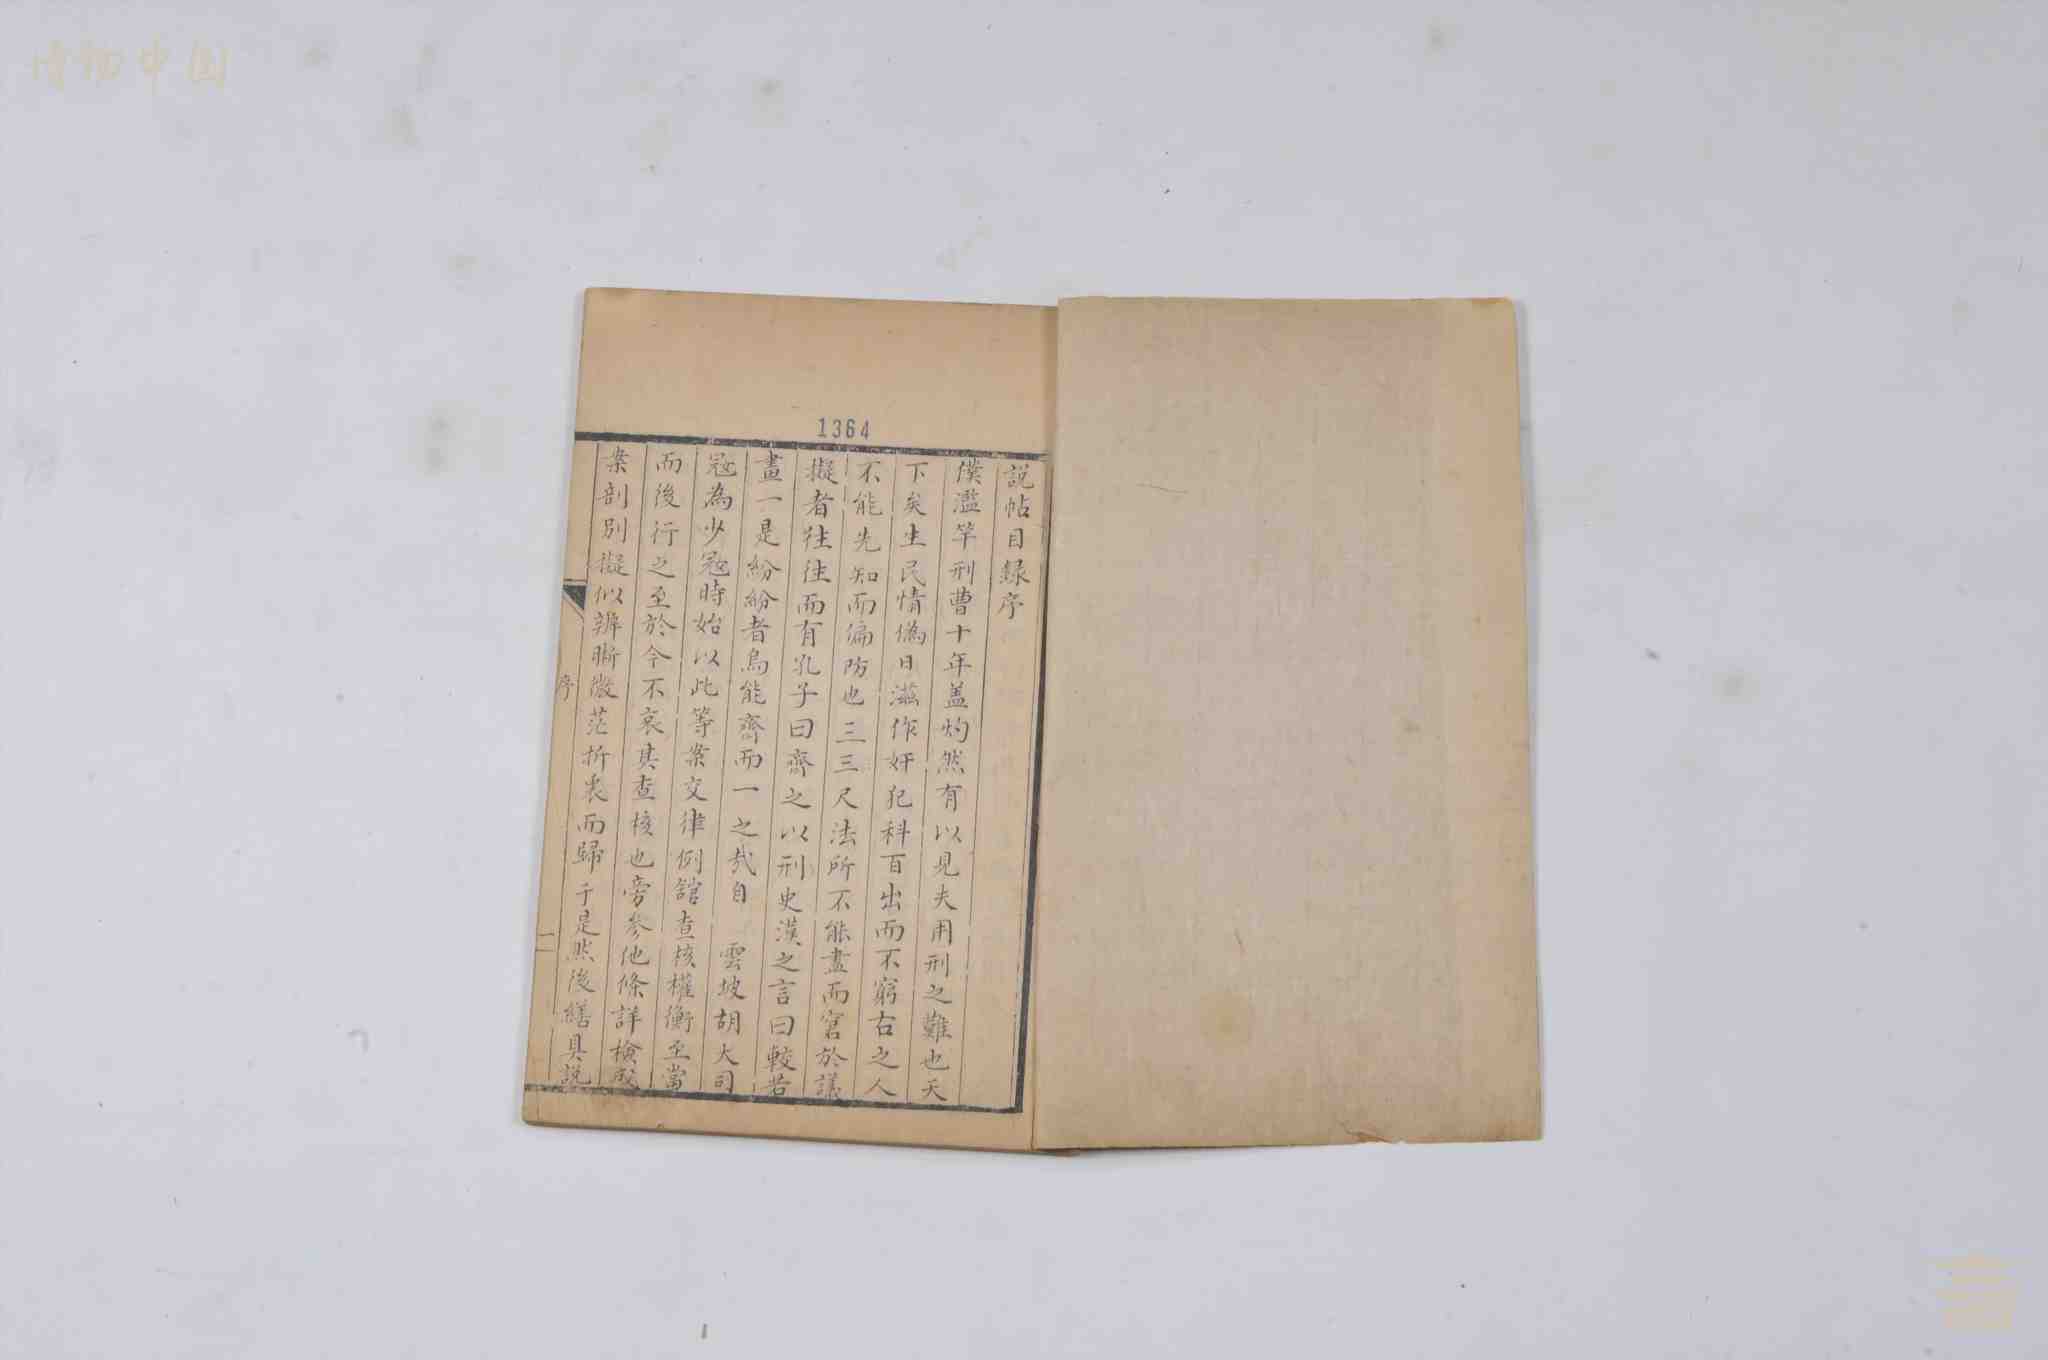 博物中国
1364
說帖目録序
僕濫竽刑曹十年盖灼然有以見夫用刑之難也天
下矣生民情偽日滋作奸犯科百出而不窮古之人
不能先知而偏防也三三尺法所不能盡而窘於議
擬者往往而有孔子曰齊之以刑史漢之言曰較若
畫一是紛紛者烏能齊而一之哉自 雲坡胡大司
冦為少冦時始以此等案交律例舘查核權衡至當
而後行之至於今不衰其查核也旁參他條詳檢成
案剖別擬似辨晰微茫折衷而歸于是然後繕具說
序
一